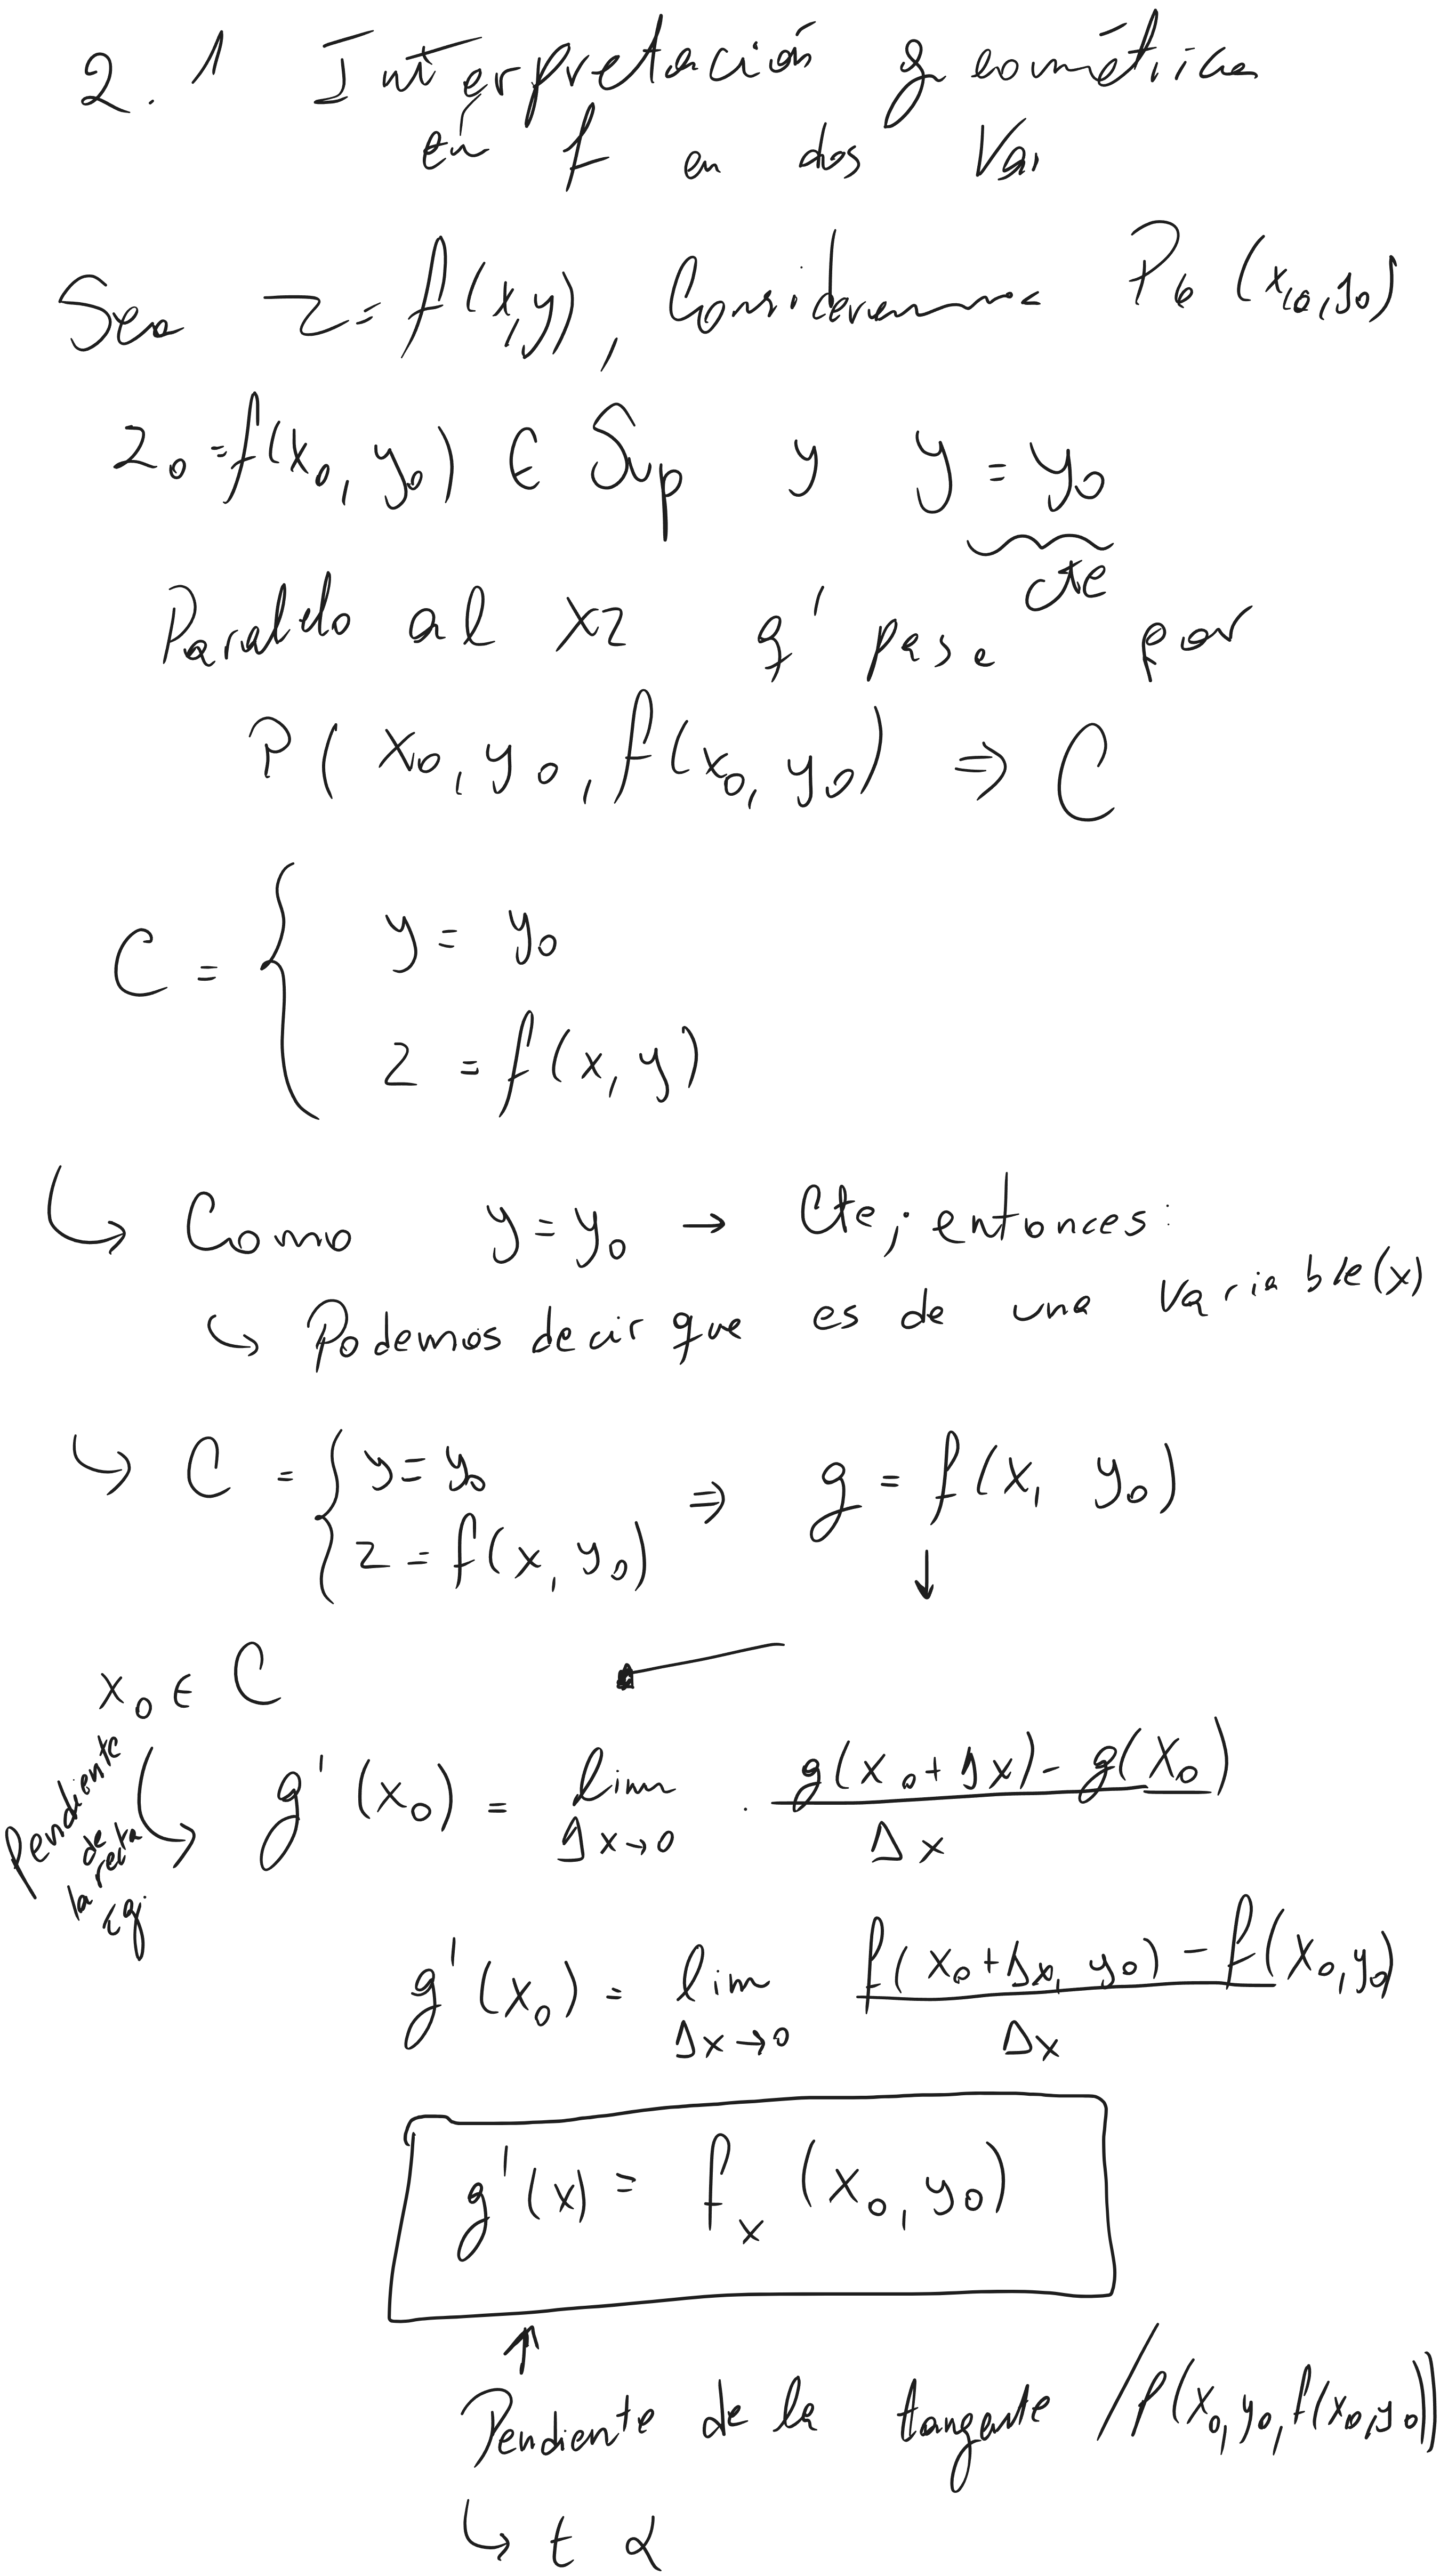 2.1 Interpretación geométrica
en f en dos Var
Sea z = f(x,y), Consideramos P₀(x₀,y₀)
z₀ = f(x₀, y₀) ∈ Sup y y = y₀
cte
Paralelo al xz q' pasa por
P(x₀, y₀, f(x₀, y₀)) ⇒ C
C = { y = y₀
z = f(x, y)
↳ Como y = y₀ → Cte; entonces:
↳ Podemos decir que es de una variable(x)
↳ C = { y = y₀ ⇒ g = f(x, y₀)
z = f(x, y₀) ↓
x₀ ∈ C
Pendiente de la recta tg.
↳ g'(x₀) = lim Δx→0 . g(x₀+Δx) - g(x₀) / Δx
g'(x₀) = lim Δx→0 f(x₀+Δx, y₀) - f(x₀,y₀) / Δx
g'(x) = fₓ (x₀, y₀)
↑
Pendiente de la tangente / P(x₀, y₀, f(x₀,y₀))
↳ t α